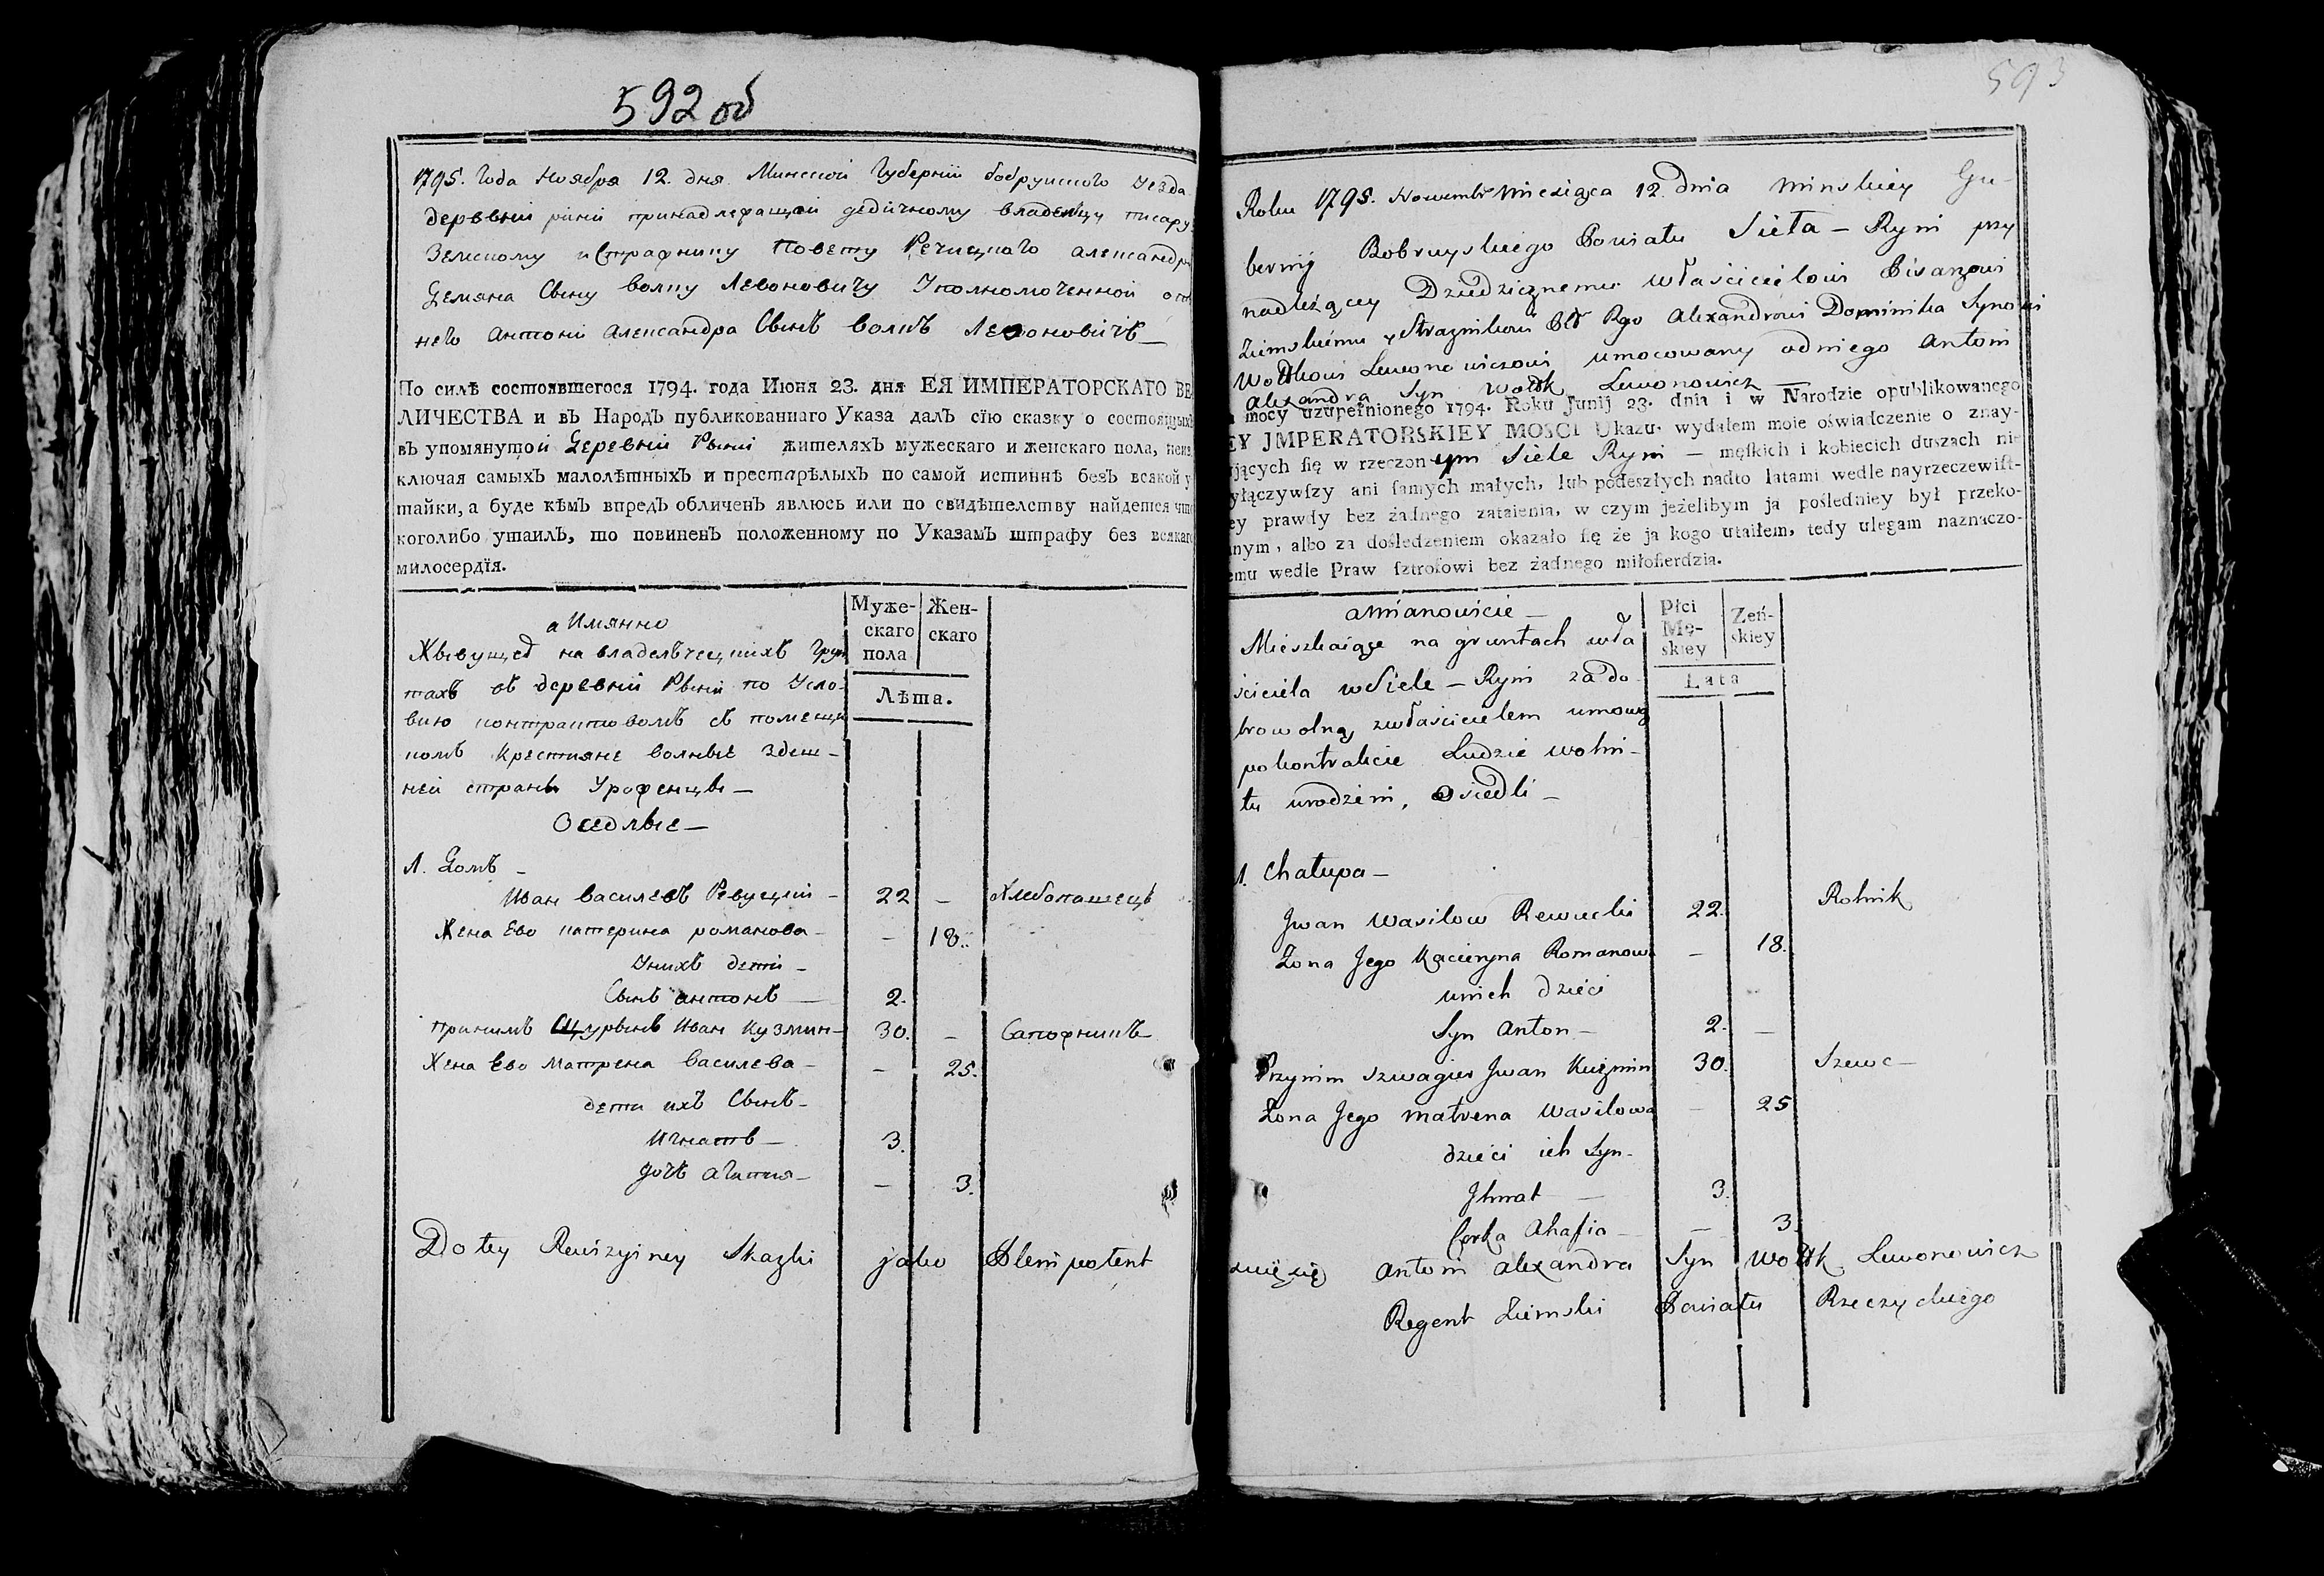 592 об
1795. Года Ноября 12. дня Минской Губерніи бобруйского уезда
деревни рыни принадлежащой дедичному владелцу писару
Земскому и Стражнику Повету Речицкаго александру
Демяна Сыну Волку Левоновичу Уполномоченной от
него Антоній Александра Сынъ волкъ Левоновичъ —
По силѣ состоявшегося 1794. года Июня 23. дня ЕЯ ИМПЕРАТОРСКАГО ВЕ
ЛИЧЕСТВА и въ Народъ публикованнаго Указа далъ сїю сказку о состоящыхъ
въ упомянутой Деревни Рыни жителяхъ мужескаго и женскаго пола, неис
ключая самыхъ малолѣтныхъ и престарѣлыхъ по самой истиннѣ безъ всякой у
тайки, а буде кѣмъ впредъ обличенъ явлюсь или по свидѣтелству найдется что
коголибо утаилъ, то повиненъ положенному по Указамъ штрафу без всякаго
милосердїя.
а Имянно
Муже-
скаго
пола
Жен-
скаго
Лѣта.
Живущеё на владелческихъ грун
тахъ въ деревни Рыни по Усло-
вию контрактовомъ съ помещи
комъ Крестияне волные здеш-
ней страны Уроженцы —
Оседлые —
1. Домъ —
Иван василевъ Ревуцкий — 22 — Хлебопашецъ
Жена Ево катерина романова — — 18.
Унихъ дети —
Сынъ антонъ — 2.
принимъ Шурынъ Иван Кузмин — 30. — Сапожникъ —
Жена Ево матрена Василева — — 25.
дети ихъ Сынъ —
Игнатъ — 3.
дочъ агапия — — 3.
Do tey Rewizyiney Skazki jako Plenipotent
593
Roku 1795. Nowembr Miesiąca 12. dnia Minskiey Gu-
bernij Bobruyskiego Powiatu Sieła — Ryni przy
nadleżącey Dziedzicznemu właścicielowi Pisarzowi
Ziemskiemu y Strażnikowi Ptu Rgo Alexandrowi Dominika Synowi
Wołkowi Lewonowiczowi umocowany odniego Antoni
Alexandra Syn Wołk Lewonowicz —
mocy uzupełnionego 1794. Roku Junij 23. dnia i w Narodzie opublikowanego
EY JMPERATORSKIEY MOSCI Ukazu, wydałem moie oświadczenie o znay-
ających się w rzeczonym Siele Ryni — męſkich i kobiecich duszach nie
yłączywſzy ani ſamych małych, lub podeszłych nadto latami wedle nayrzeczewiſt-
ey prawdy bez żadnego zataienia, w czym jeżelibym ja poſledniey był przeko-
nym, albo za dośledzeniem okazało ſię że ja kogo utaiłem, tedy ulegam naznaczo-
emu wedle Praw ſztrofowi bez żadnego miłoſierdzia.
amianowicie —
Płci
Mę-
skiey
Zeń-
skiey
Lata
Mieszkaiące na gruntach wła
ściciela w Siele — Ryni za do
browolną zwłaścicielem umową
pokontrakcie Ludzie wolni —
tu urodzeni, Osiedli —
1. Chałupa —
Jwan Wasilow Rewucki 22. Rolnik
Żona Jego Kacieryna Romanowa — 18.
unich dzieci
Syn Anton — 2. —
Przynim Szwagier Jwan Kuźmin 30. Szewc —
Żona Jego Matrena Wasilowa — 25
dzieci ich Syn —
Jhnat — 3.
Corka Ahafia — — 3.
Antoni Alexandra Syn Wołk Lewonowicz
Regent Ziemski Powiatu Rzeczyckiego